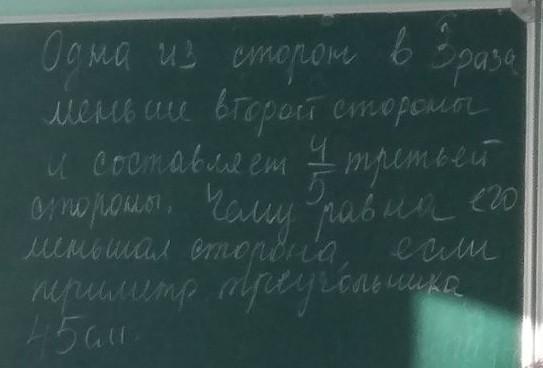 Одна из сторон в 3 раза
меньше второй стороны
и составляет 4/5 третьей
стороны. Чему равна его
меньшая сторона, если
периметр треугольника
45 см.